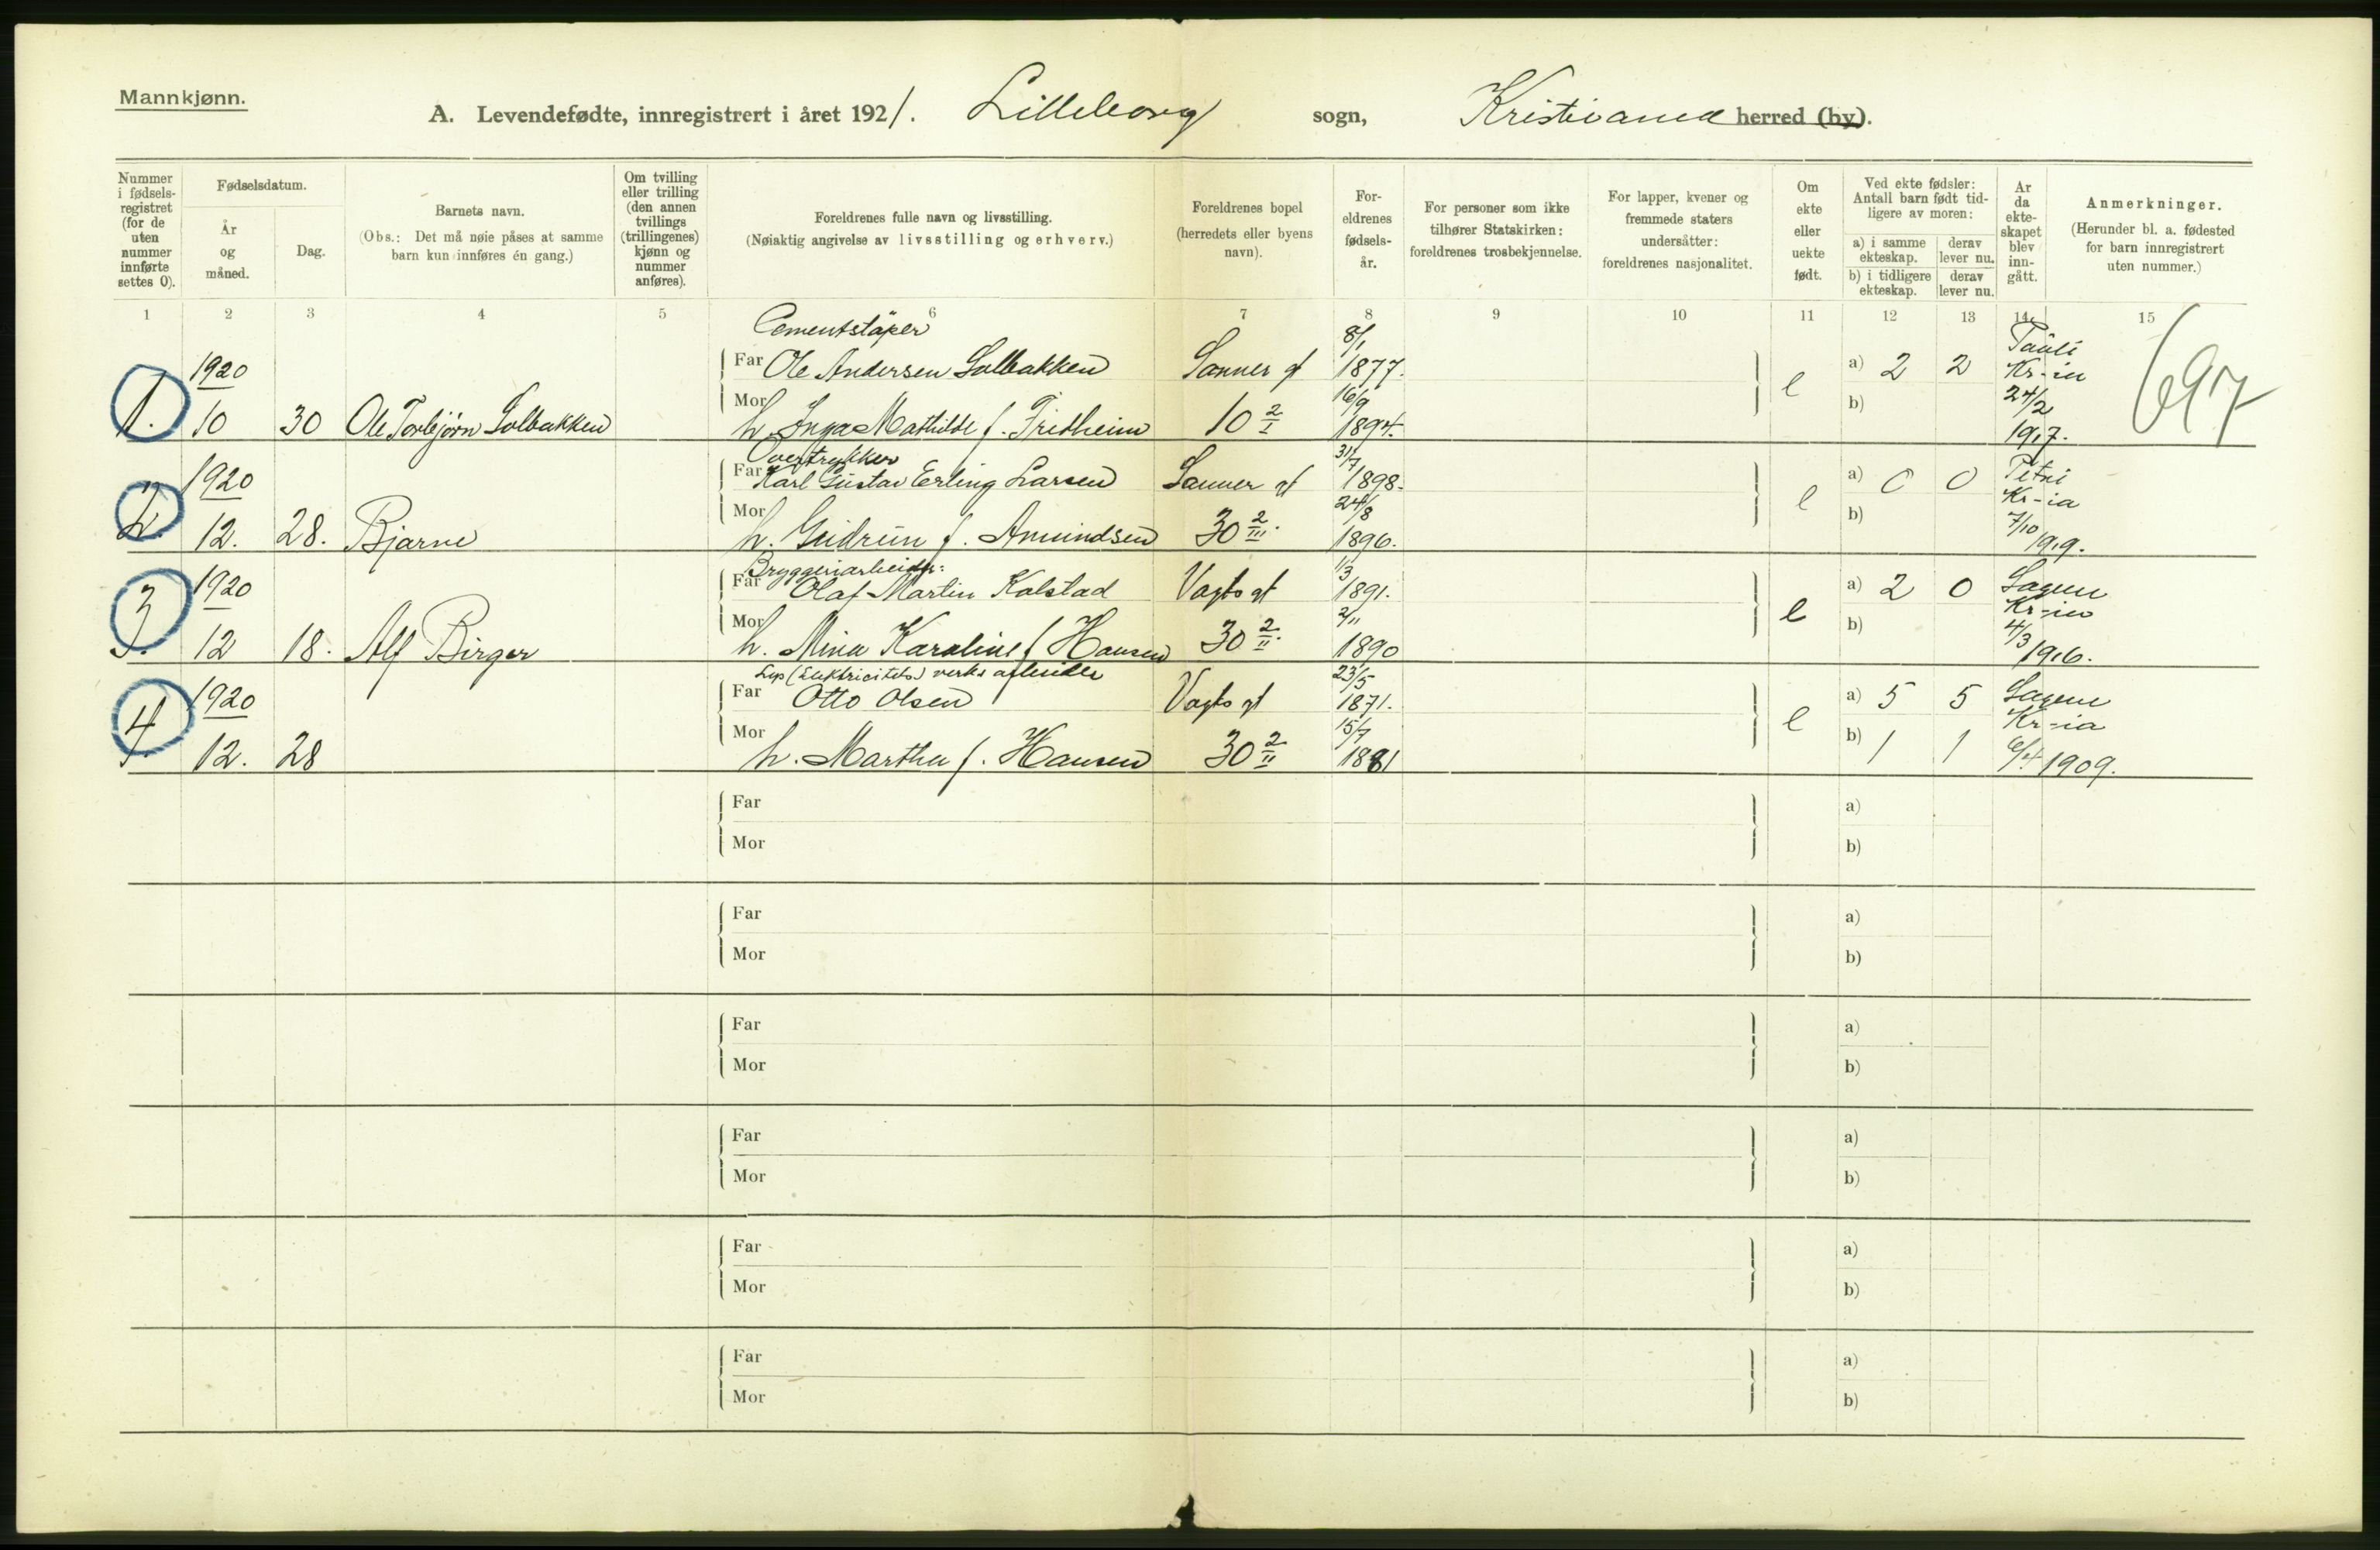 Mannkjønn.
A. Levendefødte, innregistrert i året 1921. Lilleborg sogn, Kristiania herred (by).
Nummer i fødsels-registret (for de uten nummer innførte settes 0).
Fødselsdatum.
År og måned.
Dag.
Barnets navn.
(Obs.: Det må nøie påses at samme barn kun innføres én gang.)
Om tvilling eller trilling (den annen tvillings (trillingenes) kjønn og nummer anføres).
Foreldrenes fulle navn og livsstilling.
(Nøiaktig angivelse av livsstilling og erhverv.)
Foreldrenes bopel (herredets eller byens navn).
For-eldrenes fødsels-år.
For personer som ikke tilhører Statskirken: foreldrenes trosbekjennelse.
For lapper, kvener og fremmede staters undersåtter: foreldrenes nasjonalitet.
Om ekte eller uekte født.
Ved ekte fødsler: Antall barn født tid-ligere av moren:
a) i samme ekteskap.
derav lever nu.
b) i tidligere ekteskap.
derav lever nu.
År da ekte-skapet blev inn-gått.
Anmerkninger.
(Herunder bl. a. fødested for barn innregistrert uten nummer.)
1 2 3 4 5 6 7 8 9 10 11 12 13 14 15
Cementstøper
1920 Far Ole Andersen Solbakken Sanner gt 8/1 1877. a) 2 2 Pauli Kr-ia 697
1. 10 30 Ole Torbjørn Solbakken Mor h. Inga Mathilde f. Fridheim 10 2/I 16/9 1894. e b) 24/2 1917.
Overtrykker
1920 Far Karl Gustav Erling Larsen Sanner gt 31/7 1898. a) 0 0 Petri Kr-ia
2. 12. 28. Bjarne Mor h. Gudrun f. Amundsen 30 2/III. 24/8 1896. e b) 7/10 1919.
Bryggeriarbeider:
1920 Far Olaf Martin Kolstad Vogts gt 1/3 1891. a) 2 0 Sagene Kr-ia
3. 12 18. Alf Birger Mor h. Mina Karoline f Hansen 30 2/II. 2/11 1890 e b) 4/3 1916.
Lys (Elektricitets) verks arbeider
1920 Far Otto Olsen Vogts gt 23/5 1871. a) 5 5 Sagene Kr-ia
4 12. 28 Mor h. Martha f. Hansen 30 2/II 15/7 1881 e b) 1 1 6/4 1909.
Far a)
Mor b)
Far a)
Mor b)
Far a)
Mor b)
Far a)
Mor b)
Far a)
Mor b)
Far a)
Mor b)